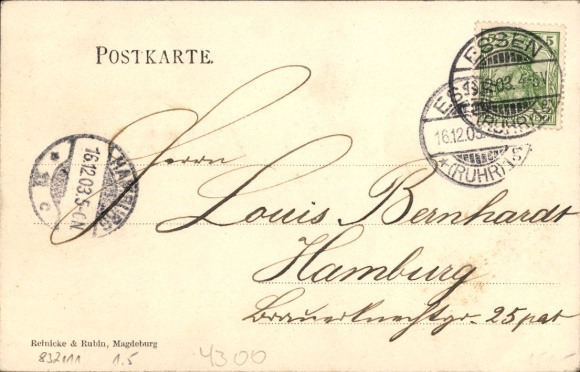 POSTKARTE.
5
ESSEN
16.12.03. 4-5N
(RUHR)
ESSEN
16.12.03.
*(RUHR)1s*
HAMBURG
16.12.03.5-6N
* 1 c
Herrn
Louis Bernhardt
Hamburg
Brauerknechtgr. 25 pat
Reinicke & Rubin, Magdeburg
832111 1.5 4300